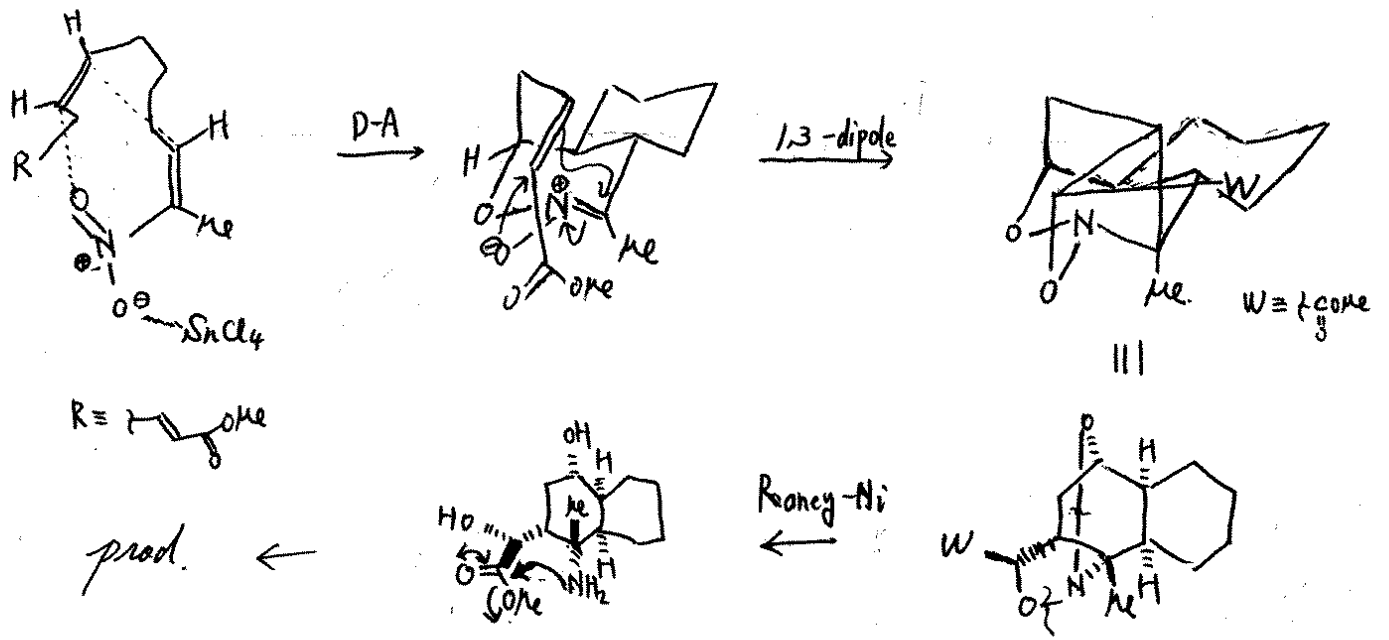 H
H
H
R
O
N
⊕
O⊖
SnCl4
Me
D-A
H
O
⊕
N
⊖O
Me
O
OMe
1,3-dipole
O
N
O
W
Me.
W ≡ COMe
O
R ≡
OMe
O
prod.
OH
H
Me
HO
O
OMe
NH2
H
Raney-Ni
O
H
W
O
N
Me
H